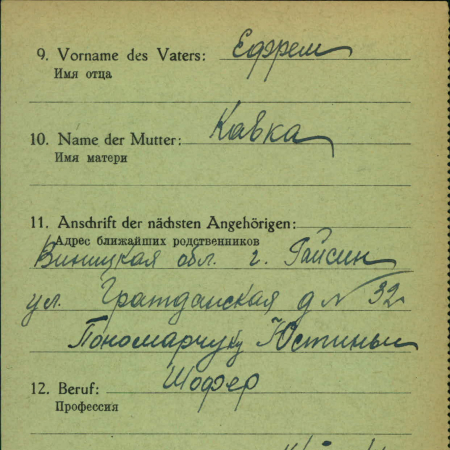 9. Vorname des Vaters: Ефрем
Имя отца
10. Name der Mutter: Кавка
Имя матери
11. Anschrift der nächsten Angehörigen:
Адрес ближайших родственников
Виницкая обл. г. Гайсин
ул. Гражданская д № 32
Пономарчуку Юстины
12. Beruf: Шофер
Профессия